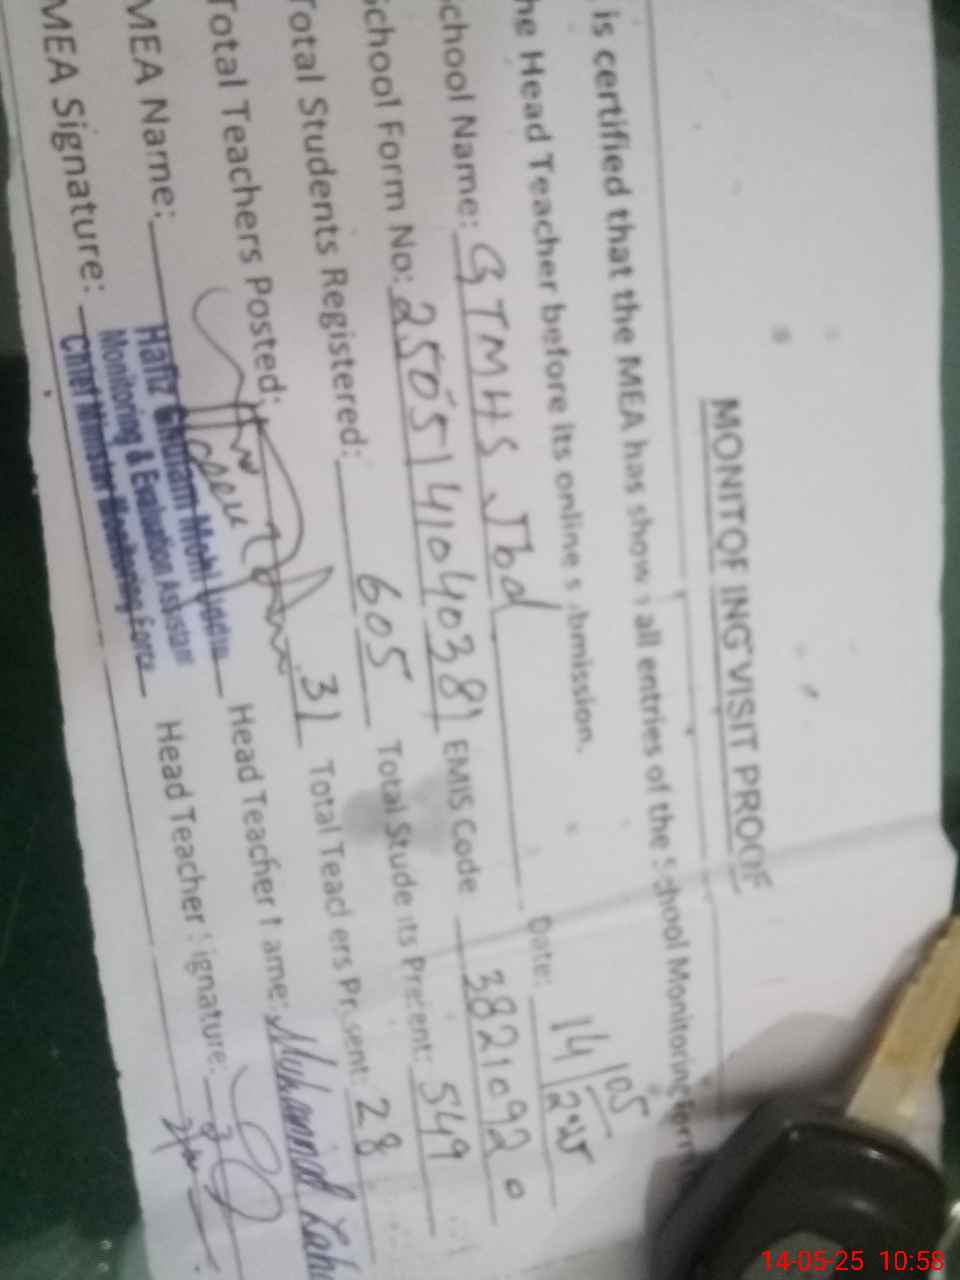 MONITORING VISIT PROOF
is certified that the MEA has shown all entries of the School Monitoring Form
he Head Teacher before its online submission.
Date: 14/05/2025
chool Name: GTMHS Jbd
School Form No: 2505141040381 EMIS Code 38210920
Total Students Registered: 605 Total Students Present: 549
Total Teachers Posted: 31 Total Teachers Present: 28
MEA Name: Head Teacher Name: Muhammad
Hafiz Ghulam Mohi
Monitoring & Evaluation Assistant
Chief Minister Monitoring Force
MEA Signature: Head Teacher Signature:
14-05-25 10:58